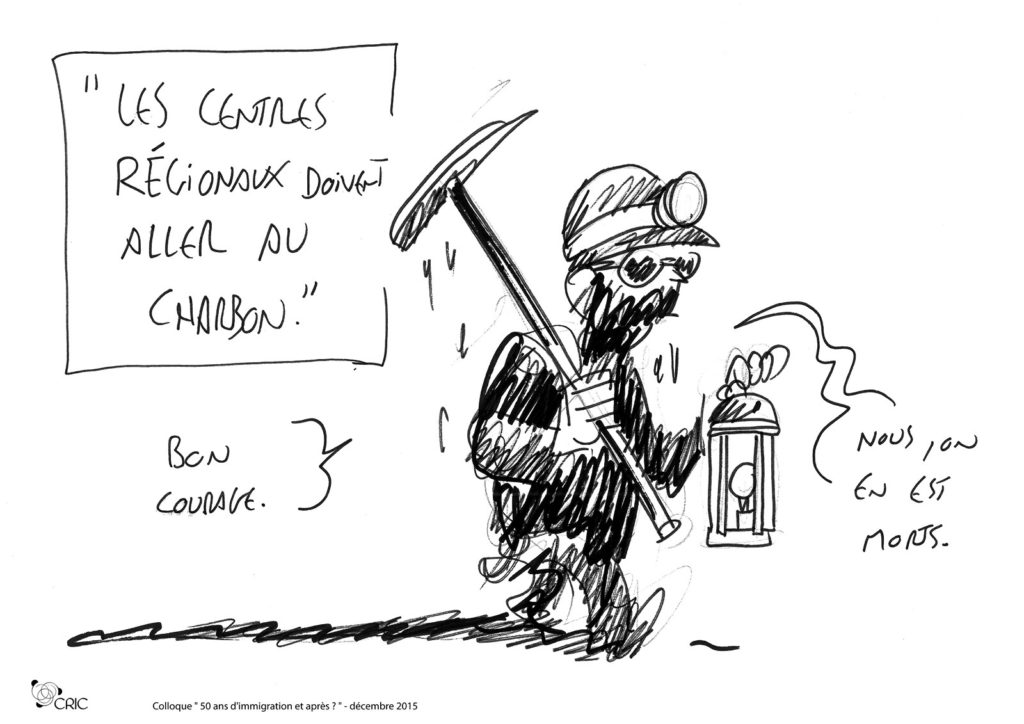 " LES CENTRES
RÉGIONAUX DOIVENT
ALLER AU
CHARBON."
BON
COURAGE.
NOUS, ON
EN EST
MORTS.
CRIC
Colloque " 50 ans d'immigration et après ? " - décembre 2015